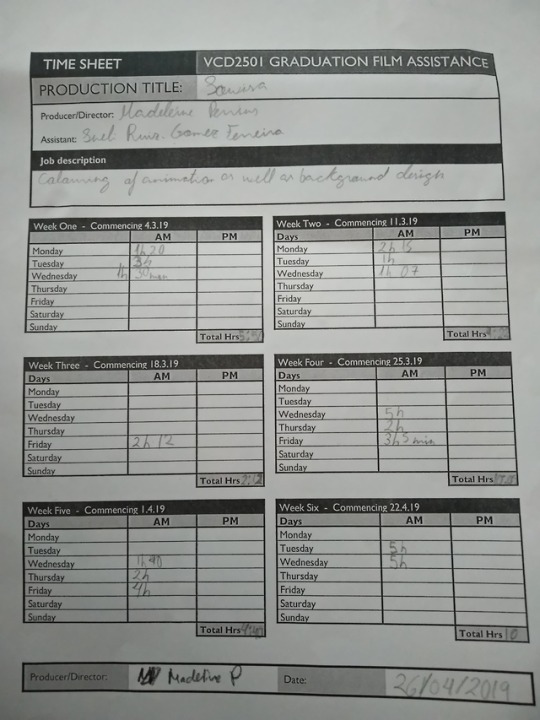 TIME SHEET VCD2501 GRADUATION FILM ASSISTANCE
PRODUCTION TITLE:
Producer/Director: Madeleine
Assistant: Ruiz-Gomez Ferreira
Job description
of animation as well as background design
Week One - Commencing 4.3.19
AM PM
Monday 1h 20
Tuesday 3h
Wednesday 1h 30min
Thursday
Friday
Saturday
Sunday
Total Hrs
Week Two - Commencing 11.3.19
Days AM PM
Monday 2h 15
Tuesday 1h
Wednesday 1h 07
Thursday
Friday
Saturday
Sunday
Total Hrs
Week Three - Commencing 18.3.19
Days AM PM
Monday
Tuesday
Wednesday
Thursday
Friday 2h 12
Saturday
Sunday
Total Hrs 2:12
Week Four - Commencing 25.3.19
Days AM PM
Monday
Tuesday
Wednesday 5h
Thursday 2h
Friday 3h 5 min
Saturday
Sunday
Total Hrs
Week Five - Commencing 1.4.19
Days AM PM
Monday
Tuesday
Wednesday 1h 40
Thursday 2h
Friday 4h
Saturday
Sunday
Total Hrs
Week Six - Commencing 22.4.19
Days AM PM
Monday
Tuesday 5h
Wednesday 5h
Thursday
Friday
Saturday
Sunday
Total Hrs 10
Producer/Director: Madeline P Date: 26/04/2019